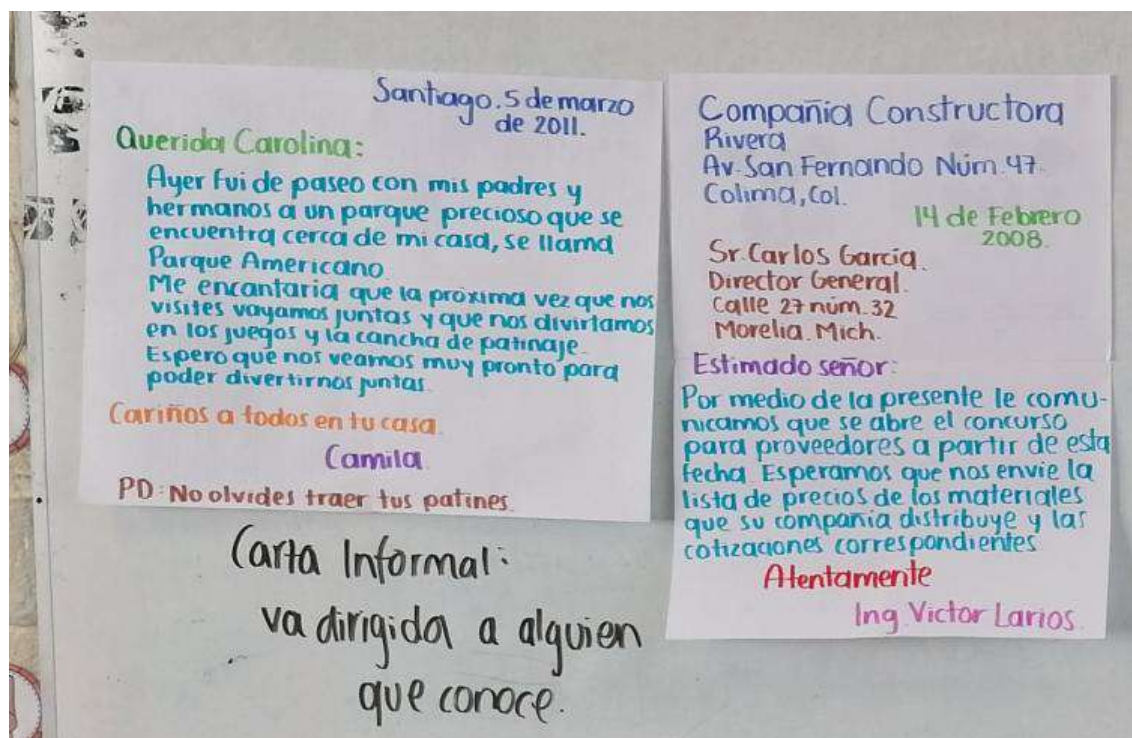 Santiago. 5 de marzo
de 2011.
Querida Carolina:
Ayer fui de paseo con mis padres y
hermanos a un parque precioso que se
encuentra cerca de mi casa, se llama
Parque Americano
Me encantaria que la próxima vez que nos
visites vayamos juntas y que nos divirtamos
en los juegos y la cancha de patinaje.
Espero que nos veamos muy pronto para
poder divertirnos juntas.
Cariños a todos en tu casa.
Camila
PD: No olvides traer tus patines.
Compañia Constructora
Rivera
Av. San Fernando Núm. 47.
Colima, Col.
14 de Febrero
2008.
Sr. Carlos García.
Director General.
Calle 27 núm. 32
Morelia. Mich.
Estimado señor:
Por medio de la presente le comu-
nicamos que se abre el concurso
para proveedores a partir de esta
fecha. Esperamos que nos envie la
lista de precios de los materiales
que su compañia distribuye y las
cotizaciones correspondientes
Atentamente
Ing. Victor Larios.
Carta Informal:
va dirigida a alguien
que conoce.